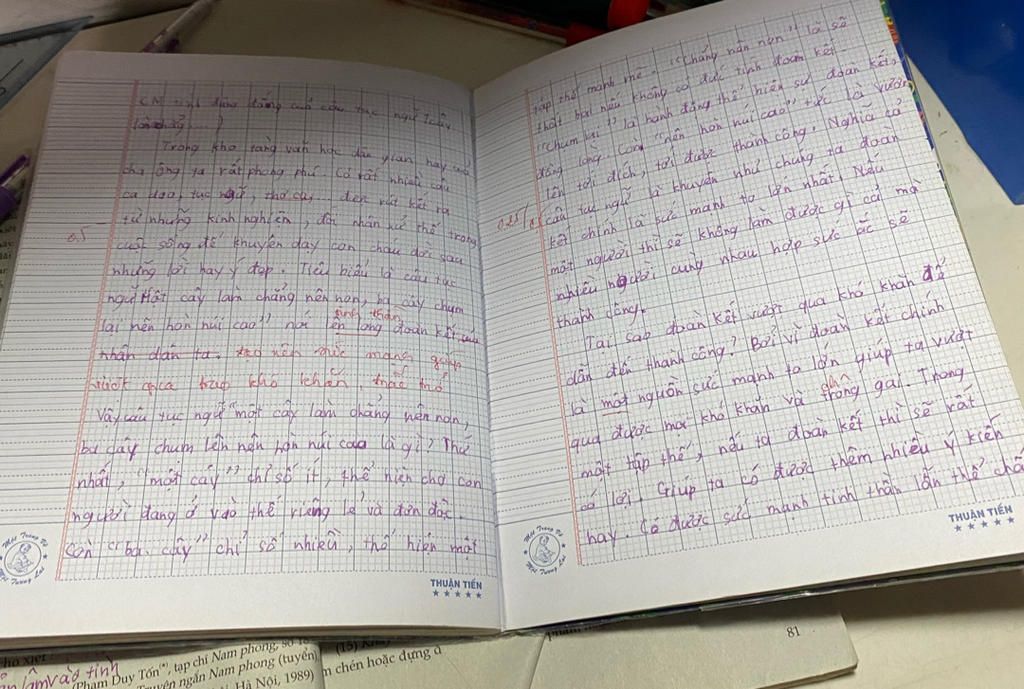 CM tính đúng đắng của câu tục ngữ "cây
làm chẳng ... "
Trong kho tàng văn học dân gian nay của
cha ông ta rất phong phú. Có rất nhiều câu
ca dao, tục ngữ, thơ ca, ... đen rút kết ra
0.5
từ những kinh nghiên, đối nhân xử thế trong
cuột sống để khuyên dạy con cháu đời sau
những lời hay ý đẹp. Tiêu biểu là câu tục
ngữ "Một cây làm chẳng nên non, ba cây chụm
tinh thần
lại nên hòn núi cao" nói lên lòng đoàn kết của
nhân dân ta. tạo nên sức mạnh giúp
vượt qua bao khó khăn, thác thổ
Vậy câu tục ngữ "một cây làm chẳng nên non,
ba cây chụm lên nên hòn núi cao là gì? Thứ
nhất, "một cây" chỉ số ít, thể hiện cho con
người đang ở vào thế riêng lẻ và đơn độc.
còn "ba cây" chỉ số nhiều, thể hiện một
Một Trang Vở
Một Tương Lai
THUẬN TIẾN
tập thể mạnh mẽ. "Chẳng nên non" là sẽ
thất bại nếu không có được tính đoàn kết.
"Chụm lại" là hành động thể hiện sự đoàn kết,
đồng lòng. Còn "nên hòn núi cao" tức là vươn
lên tới đích, tới được thành công. Nghĩa cả
0.25
câu tục ngữ là khuyên nhủ chúng ta đoàn
kết chính là sức mạnh to lớn nhất! Nếu
một người thì sẽ không làm được gì cả mà
nhiều người cùng nhau hợp sức ắc sẽ
thành công.
Tại sao đoàn kết vượt qua khó khăn để
dẫn đến thành công? Bởi vì đoàn kết chính
là một nguồn sức mạnh to lớn giúp ta vượt
qua được mọi khó khăn và trông gai. Trong
một tập thể, nếu ta đoàn kết thì sẽ rất
có lợi. Giúp ta có được thêm nhiều ý kiến
hay. Có được sức mạnh tinh thần lẫn thể chấ
Một Trang Vở
Một Tương Lai
THUẬN TIẾN
lâm vào tình
(Phạm Duy Tốn(*), tạp chí Nam phong, số 18
Truyện ngắn Nam phong (tuyển)
Hà Nội, 1989)
(15)
n chén hoặc dựng đ
81